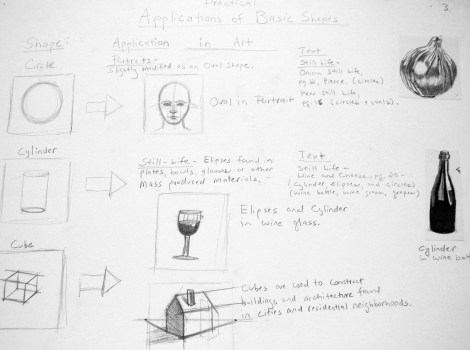 Practical
Applications of Basic Shapes
3
Shape:
Application in Art
Text
Circle
Portraits -
slightly modified as an Oval shape.
Still Life -
Onion Still Life,
pg. 2, Pierce (circles)
Pear Still Life,
pg. 16 (circles + ovals).
Oval in Portrait
Cylinder
Still-Life - Elipses found in
plates, bowls, glasses or other
mass produced materials. -
Text
Still Life -
Wine and Cheese, pg. 20 -
(cylinder, elipses, and circles)
(wine bottle, wine glass, grapes)
Elipses and Cylinder
in wine glass.
Cylinder
in wine
Cube
Cubes are used to construct
buildings and architecture found
in cities and residential neighborhoods.